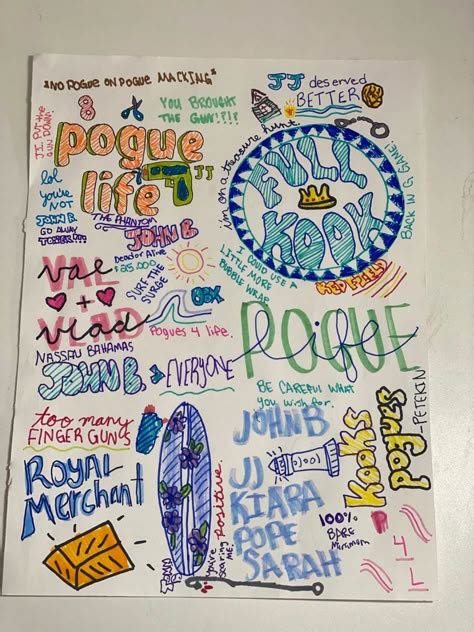 *NO POGUE ON POGUE MACKING*
JJ deserved
BETTER
YOU BROUGHT
THE GUN!?!?
8
JJ, PUT the
GUN DOWN!
pogue
life
JJ
im on a treasure hunt
FULL
KOOK
BACK IN G GAME!
lol
you're
NOT
JOHN B
GO AWAY
THE PHANTOM
JOHN B
I COULD USE A
LITTLE MORE
BUBBLE WRAP
VAL
+
vlad
Dead or Alive
$25,000
SURF THE
SURGE
OBX
Pogues 4 life.
NASSAU BAHAMAS
POGUE
life
JOHN B
EVERYONE
BE CAREFUL WHAT
you wish for.
too many
FINGER GUNS
JOHN B
JJ
KIARA
POPE
SARAH
Kooks
pogues
-PETERKIN
ROYAL
Merchant
you're
scaring
ME!
positive
100%
P
4
L